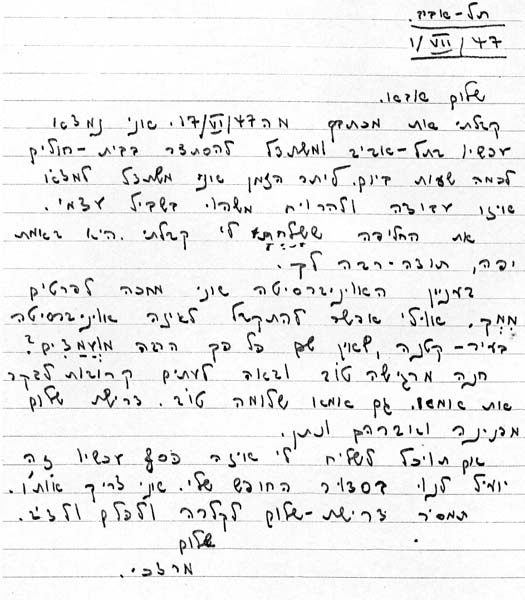 תל-אביב.
1/VII/47
שלום אבא.
קבלתי את מכתבך מה17/VI/47. אני נמצא
עכשיו בתל-אביב ומשתכל להסתדר בבית-חולים
לכמה שעות ביום. ליתר הזמן אני משתכל למצוא
איזו עבודה ולהרויח משהו בשביל עצמי.
את החליפה ששלחת לי קבלתי. היא באמת
יפה, תודה-רבה לך.
בעניין האוניברסיטה אני מחכה לפרטים
ממך. אולי אפשר להתקבל לאיזה אוניברסיטה
בעיר-קטנה, שאין שם כל כך הרבה מועמדים?
חנה מרגישה טוב ובאה לעתים קרובות לבקר
את אמא. גם אמא שלומה טוב. דרישת שלום
מפנינה ואברהם ונתן.
אם תוכל לשלוח לי איזה כסף עכשיו זה
יועיל לנו בסדור החופש שלי. אני צריך אותו.
תמסור דרישת-שלום לקלרה ולכלם ולדב.
שלום
מרדכי.